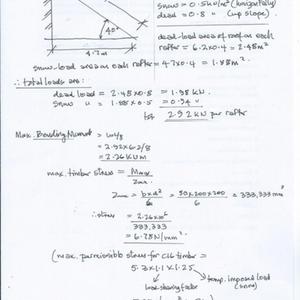 snow = 0.5kN/m² (horizontally)
dead = 0.8 " (up slope).
40°
4.7m
dead-load area of roof on each
rafter = 6.2x0.4 = 2.48m²
snow-load area on each rafter = 4.7x0.4 = 1.88m².
∴ total loads are:
dead load = 2.48x0.8 = 1.98 kN
snow " = 1.88x0.5 = 0.94 "
tot 2.92 kN per rafter
Max. Bending Moment = WL/8
= 2.92x6.2/8
= 2.26 kNm
max. timber stress = Mmax
Zmax.
Zmax = bxd² = 50x200x200 = 333,333 mm³
6 6
∴ stress = 2.26x10⁶
333,333
= 6.78N/mm².
(max. permissible stress for C16 timber =
5.3x1.1x1.25
load-sharing factor
temp. imposed load
(snow)